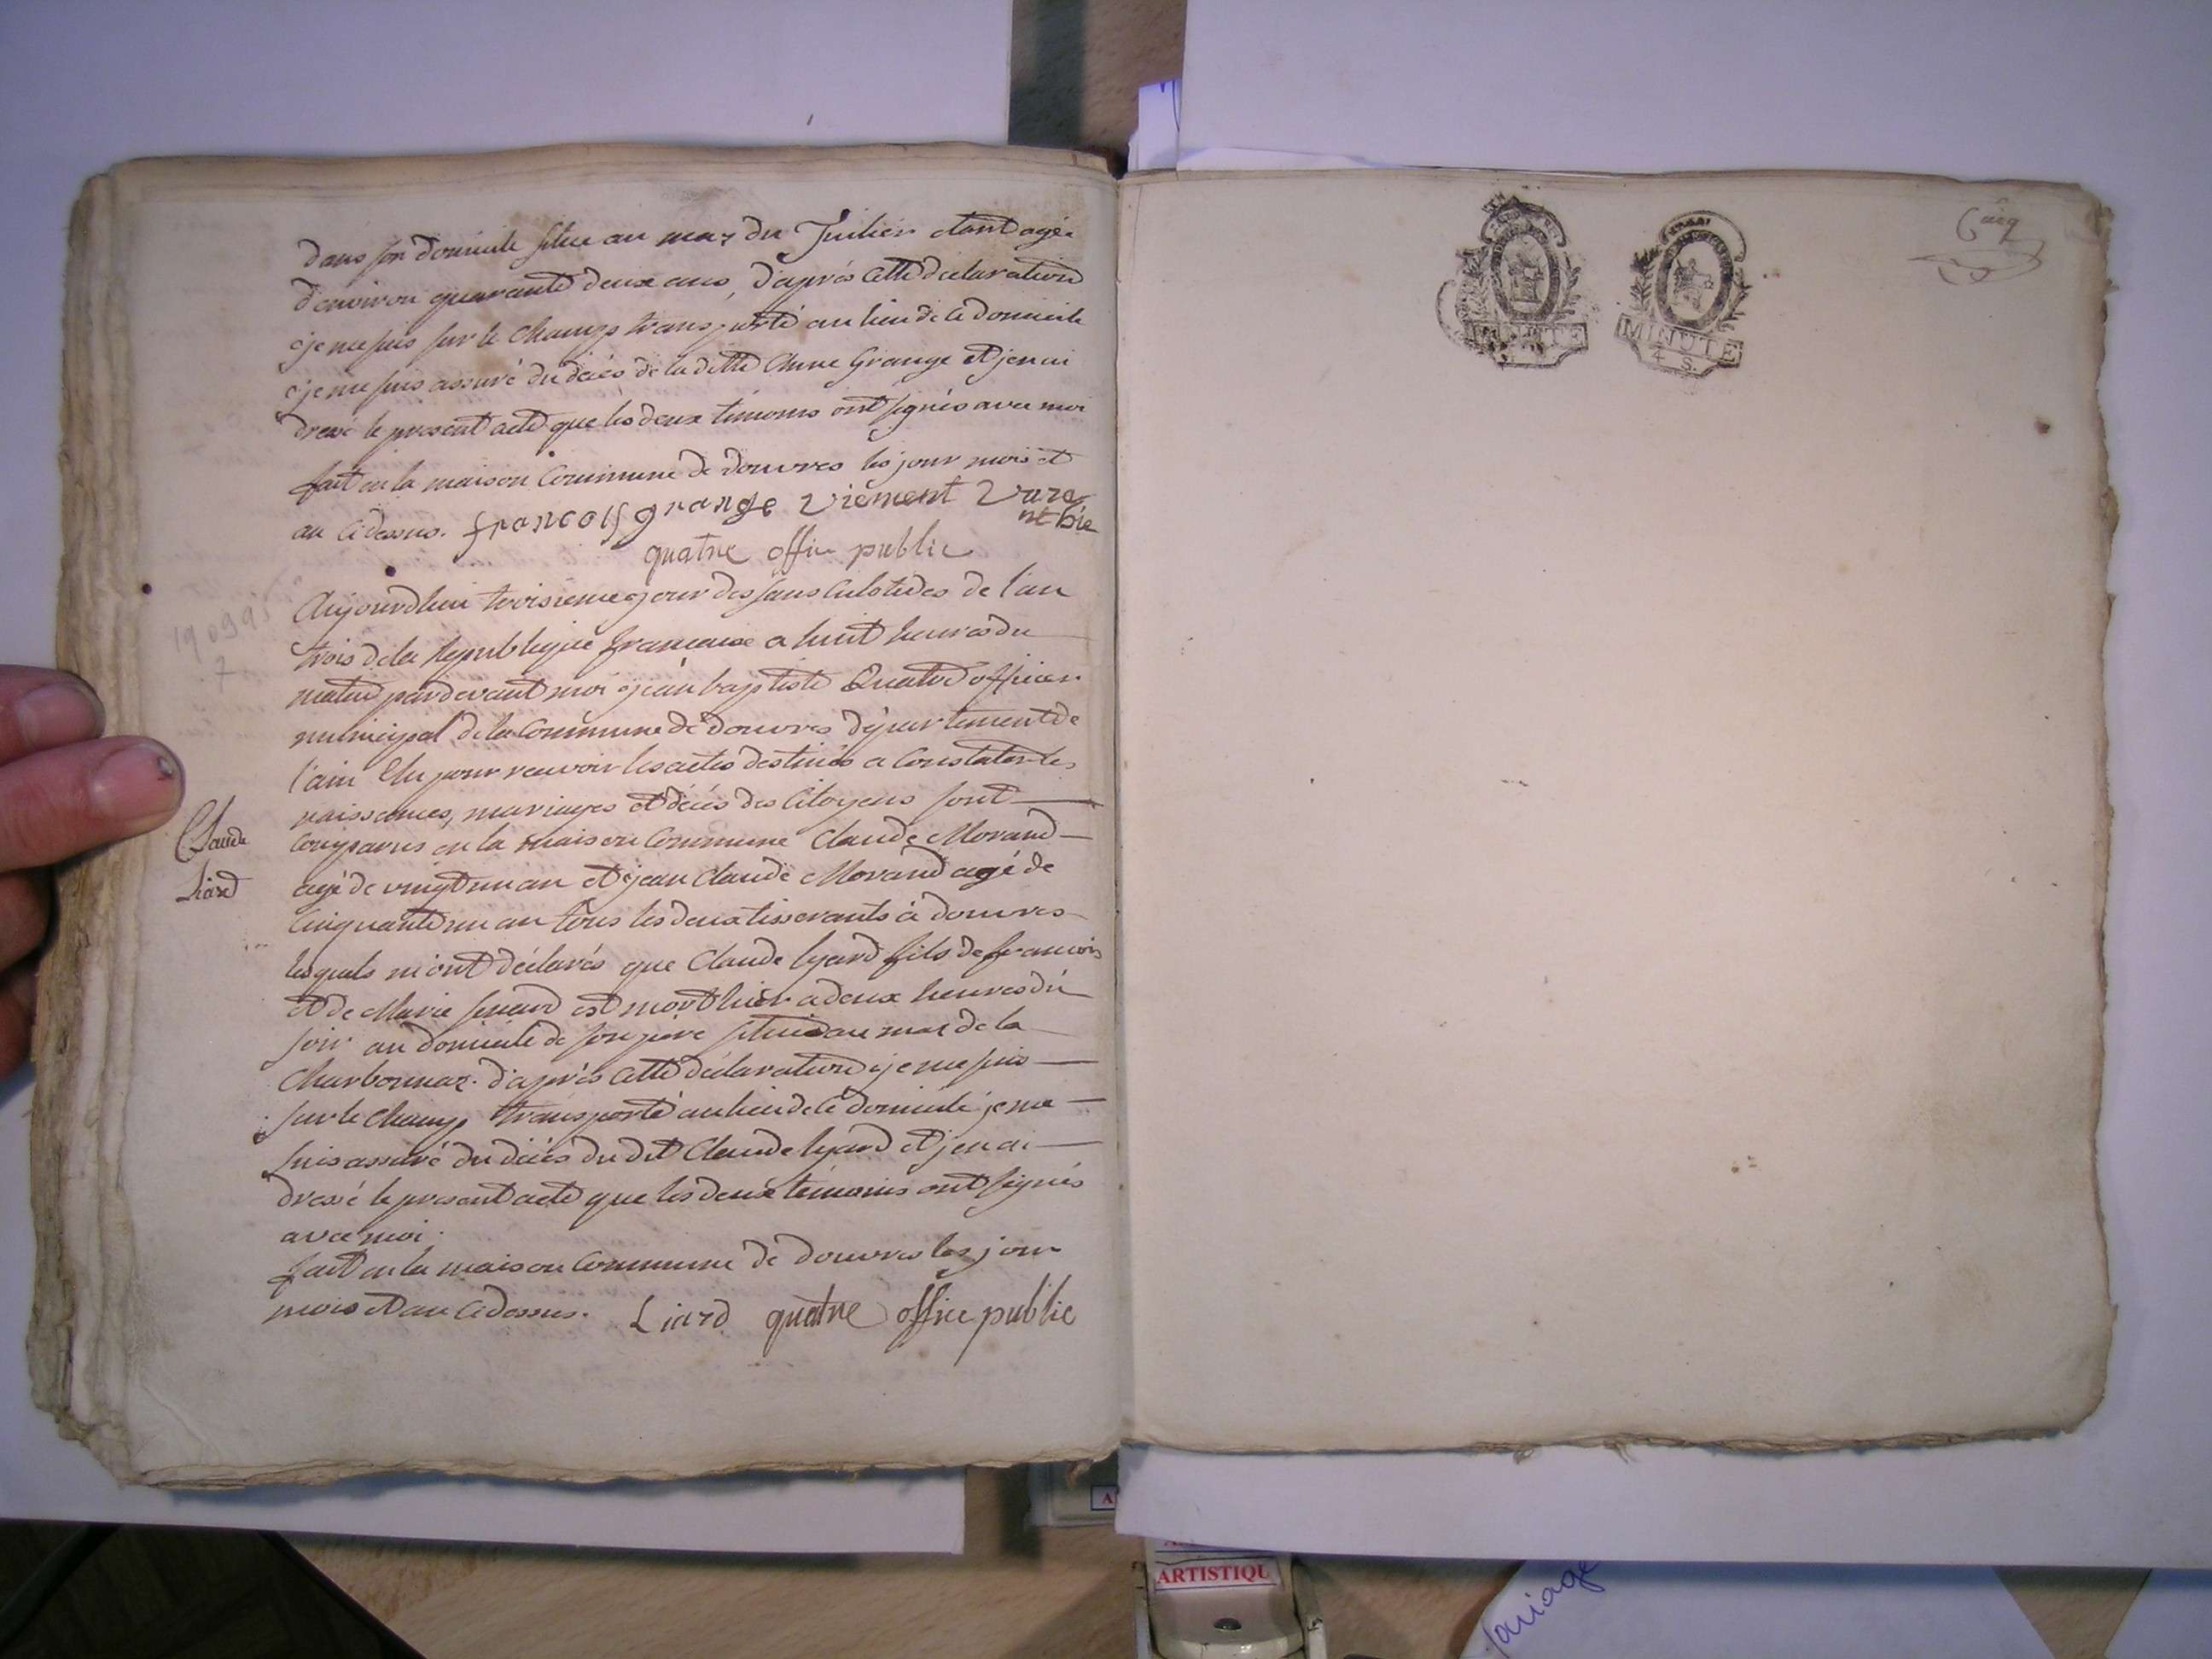 dans son domicile situe au mas du Juilier etant agée
d'environ quarante deux ans, d'après cette declaration
je me suis sur le champs transporté au lieu de ce domicile
je me suis assuré du décès de la ditte Anne Grange et j'en ai
dressé le present acte que les deux témoins ont signés avec moi
fait en la maison Commune de douvres les jour mois et
an cidessus. francois grange viement
quatre offi public
Aujourdhui troisieme jour des sans culotides de l'an
trois de la République francaise a huit heures du
matin pardevant moi jean baptiste Quatre officier
municipal de la Commune de douvres département de
l'ain Elu pour recevoir les actes destinés a Constater les
naissances, mariages et décès des Citoyens sont
Comparus en la maison Commune Claude Morand
agé de vingt un an et jean Claude Morand agé de
Cinquante un an tous les deux tisserants à douvres
Claude
Liard
lesquels m'ont déclarés que Claude lyard fils de francois
et de Marie est mort hier a deux heures du
soir au domicile de son père situé au mas de la
Charbonnaz. d'après cette déclaration je me suis
sur le champ transporté au lieu de ce domicile je me
suis assuré du décès du dit Claude lyard et j'en ai
dressé le present acte que les deux témoins ont signés
avec moi.
fait en la maison Commune de douvres les jour
mois et an cidessus. Liard quatre office public
190995
7
MINUTE
MINUTE
4 S.
Cinq
A
ARTISTIQU
mariage